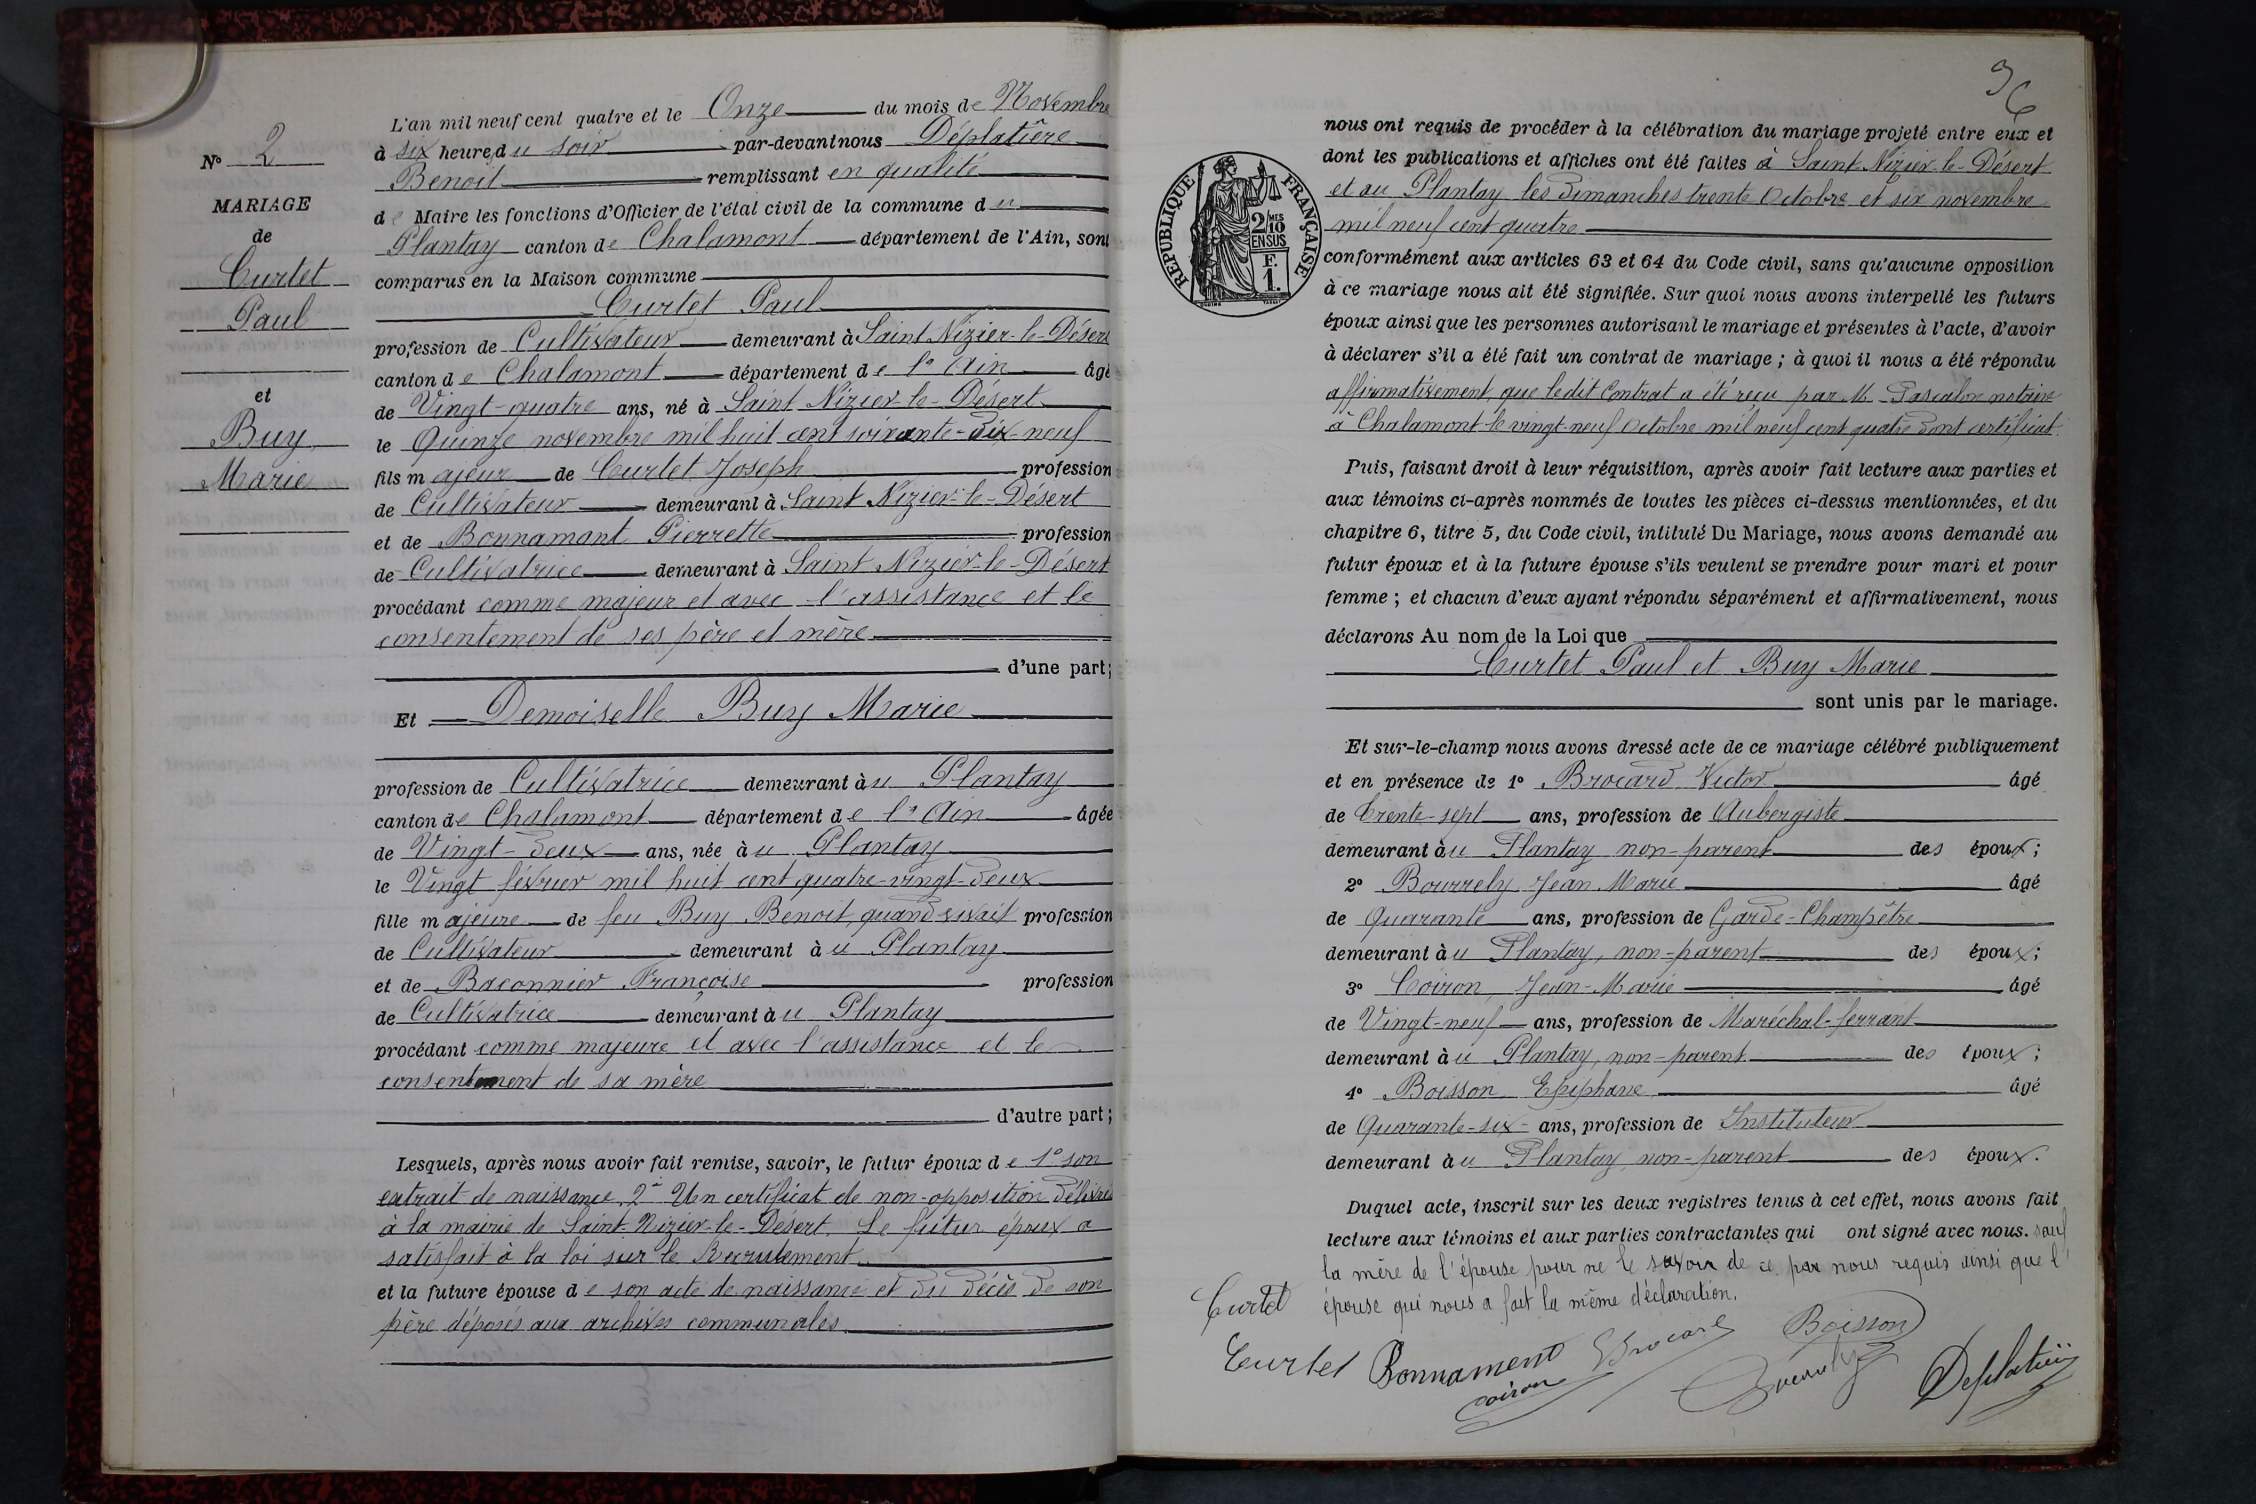 N° 2
MARIAGE
de
Curtet
Paul
et
Buy
Marie
L'an mil neuf cent quatre et le Onze du mois de Novembre
à six heure du soir par-devant nous Déplatière
Benoit remplissant en qualité
de Maire les fonctions d'Officier de l'état civil de la commune du
Plantay canton de Chalamont département de l'Ain, sont
comparus en la Maison commune
Curtet Paul
profession de Cultivateur demeurant à Saint Nizier-le-Désert
canton de Chalamont département de l'Ain âgé
de Vingt-quatre ans, né à Saint Nizier-le-Désert
le Quinze novembre mil huit cent soixante-dix-neuf
fils majeur de Curtet Joseph profession
de Cultivateur demeurant à Saint Nizier-le-Désert
et de Bonnamant Pierrette profession
de Cultivatrice demeurant à Saint Nizier-le-Désert
procédant comme majeur et avec l'assistance et le
consentement de ses père et mère
d'une part;
Et Demoiselle Buy Marie
profession de Cultivatrice demeurant àu Plantay
canton de Chalamont département de l'Ain âgée
de Vingt-deux ans, née àu Plantay
le Vingt février mil huit cent quatre-vingt-deux
fille majeure de feu Buy Benoit, quand vivait profession
de Cultivateur demeurant àu Plantay
et de Baconnier Françoise profession
de Cultivatrice demeurant àu Plantay
procédant comme majeure et avec l'assistance et le
consentement de sa mère
d'autre part;
Lesquels, après nous avoir fait remise, savoir, le futur époux de 1° son
extrait de naissance, 2° Un certificat de non-opposition délivré
à la mairie de Saint-Nizier-le-Désert. Le futur époux a
satisfait à la loi sur le Recrutement
et la future épouse de son acte de naissance et du décès de son
père déposés aux archives communales
36
RÉPUBLIQUE FRANÇAISE
2/10
MES
EN SUS
F.
1.
nous ont requis de procéder à la célébration du mariage projeté entre eux et
dont les publications et affiches ont été faites à Saint Nizier-le-Désert
et au Plantay les dimanches trente Octobre et six novembre
mil neuf cent quatre
conformément aux articles 63 et 64 du Code civil, sans qu'aucune opposition
à ce mariage nous ait été signifiée. Sur quoi nous avons interpellé les futurs
époux ainsi que les personnes autorisant le mariage et présentes à l'acte, d'avoir
à déclarer s'il a été fait un contrat de mariage; à quoi il nous a été répondu
affirmativement, que ledit Contrat a été reçu par M. Pascalon notaire
à Chalamont le vingt-neuf Octobre mil neuf cent quatre dont certificat.
Puis, faisant droit à leur réquisition, après avoir fait lecture aux parties et
aux témoins ci-après nommés de toutes les pièces ci-dessus mentionnées, et du
chapitre 6, titre 5, du Code civil, intitulé Du Mariage, nous avons demandé au
futur époux et à la future épouse s'ils veulent se prendre pour mari et pour
femme; et chacun d'eux ayant répondu séparément et affirmativement, nous
déclarons Au nom de la Loi que
Curtet Paul et Buy Marie
sont unis par le mariage.
Et sur-le-champ nous avons dressé acte de ce mariage célébré publiquement
et en présence de 1° Brocard Victor âgé
de Trente-sept ans, profession de Aubergiste
demeurant àu Plantay non-parent des époux;
2° Bourrely Jean Marie âgé
de Quarante ans, profession de Garde-Champêtre
demeurant àu Plantay, non-parent des époux;
3° Coiron Jean-Marie âgé
de Vingt-neuf ans, profession de Maréchal-ferrant
demeurant àu Plantay, non-parent des époux;
4° Boisson Epiphane âgé
de Quarante-six ans, profession de Instituteur
demeurant àu Plantay, non-parent des époux.
Duquel acte, inscrit sur les deux registres tenus à cet effet, nous avons fait
lecture aux témoins et aux parties contractantes qui ont signé avec nous. sauf
la mère de l'épouse pour ne le savoir de ce par nous requis ainsi que l'
épouse qui nous a fait la même déclaration.
Curtet
Curtet Bonnament Brocard Boisson
coiron Bourrely Deplatière